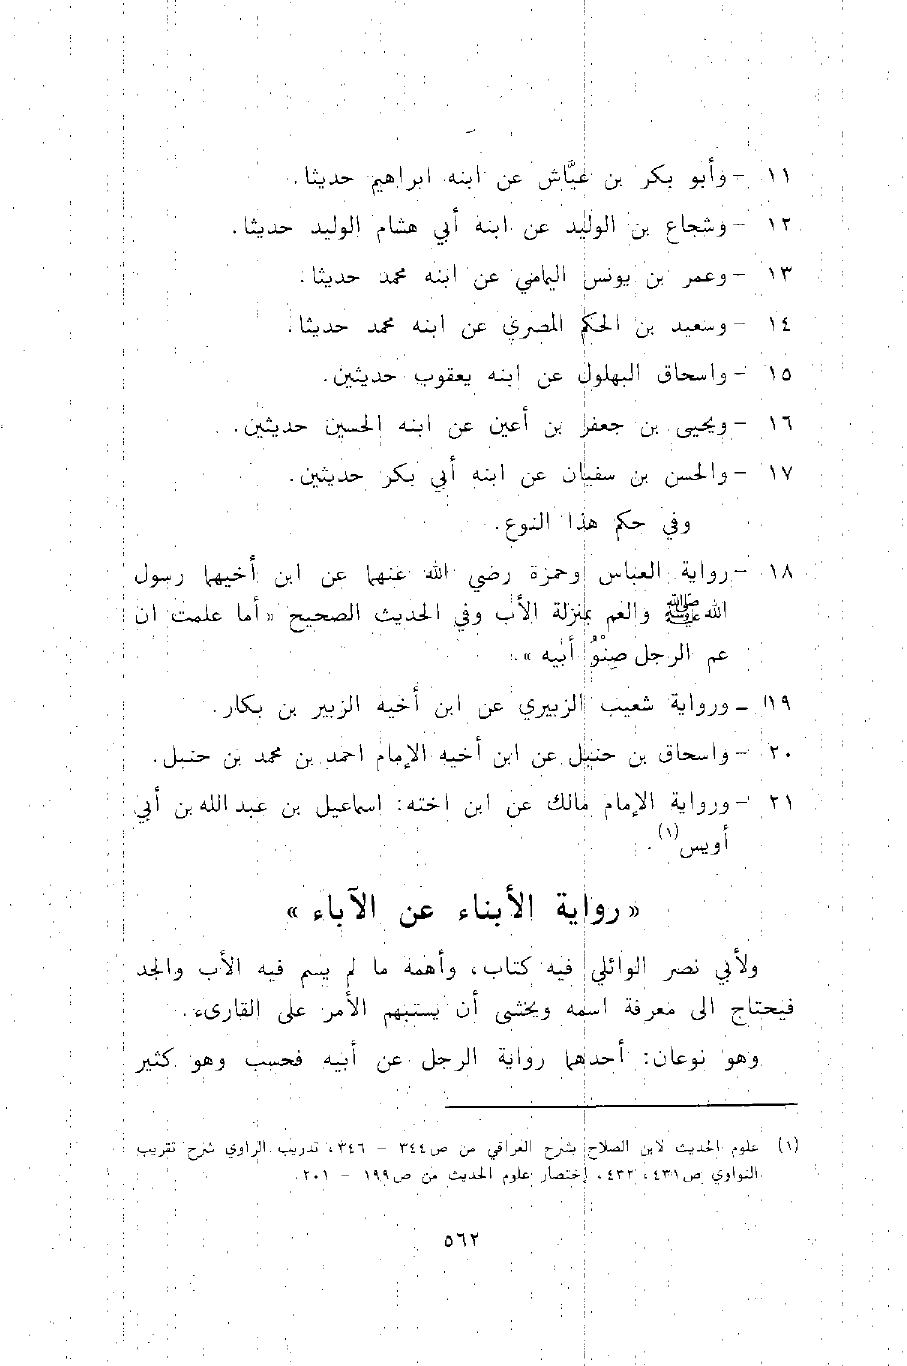 ١١ - وأبو بكر بن عيَّاش عن ابنه ابراهيم حديثا.
١٢ - وشجاع بن الوليد عن ابنه أبي هشام الوليد حديثا.
١٣ - وعمر بن يونس اليمامي عن ابنه محمد حديثا.
١٤ - وسعيد بن الحكم المصري عن ابنه محمد حديثا.
١٥ - واسحاق البهلول عن ابنه يعقوب حديثين.
١٦ - ويحيى بن جعفر بن أعين عن ابنه الحسين حديثين.
١٧ - والحسن بن سفيان عن ابنه أبي بكر حديثين.
وفي حكم هذا النوع.
١٨ - رواية العباس وحمزة رضي الله عنهما عن ابن أخيهما رسول
الله ﷺ والعم بمنزلة الأب وفي الحديث الصحيح « أما علمت ان
عم الرجل صِنْوُ أبيه ».
١٩ - ورواية شعيب الزبيري عن ابن أخيه الزبير بن بكار.
٢٠ - واسحاق بن حنبل عن ابن أخيه الإمام احمد بن محمد بن حنبل.
٢١ - ورواية الإمام مالك عن ابن اخته: اسماعيل بن عبد الله بن أبي
أويس(١).
« رواية الأبناء عن الآباء »
ولأبي نصر الوائلي فيه كتاب، وأهمه ما لم يسم فيه الأب والجد
فيحتاج الى معرفة اسمه ويخشى أن يستبهم الأمر على القارىء.
وهو نوعان: أحدهما رواية الرجل عن أبيه فحسب وهو كثير
(١) علوم الحديث لابن الصلاح بشرح العراقي من ص٣٤٤ - ٣٤٦، تدريب الراوي شرح تقريب
النواوي ص٤٣١، ٤٣٢، إختصار علوم الحديث من ص١٩٩ - ٢٠١.
٥٦٢